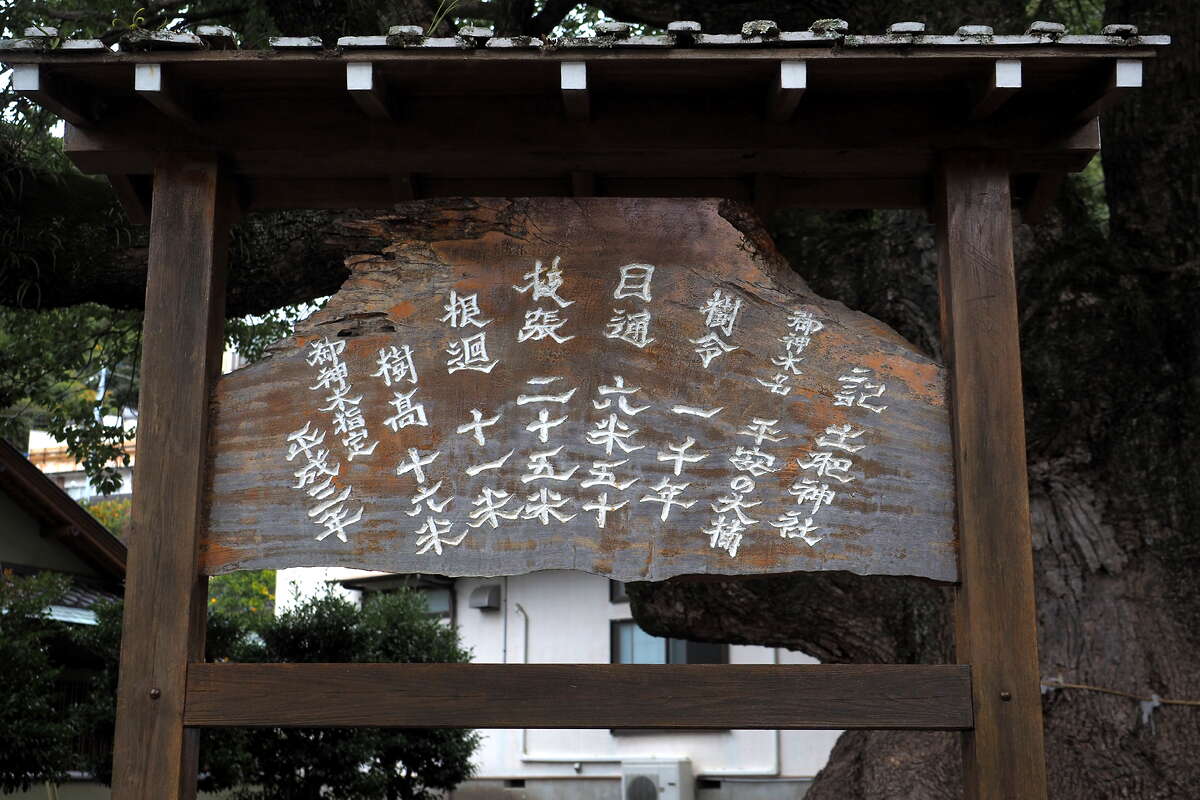 記 土肥神社
御神木名 平安の大楠
樹令 一千年
目通 六米五十
枝張 二十五米
根廻 十一米
樹高 十六米
御神木指定 平成二年